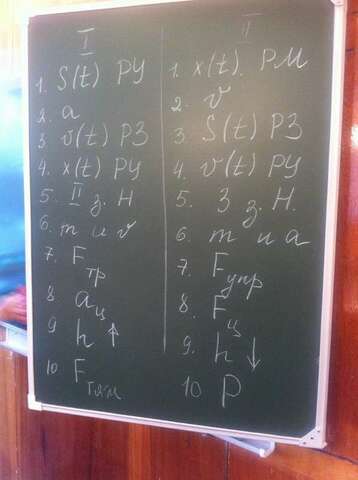 I
1. S(t) РУ
2. a
3 v(t) РЗ
4. x(t) РУ
5. II з. Н
6. m и v
7. Fтр
8 aц
9 h ↑
10 Fтяж
II
1. x(t). РМ
2. v
3. S(t) РЗ
4. v(t) РУ
5. 3 з. Н.
6 m и a
7. Fупр
8. Fц
9. h ↓
10 P